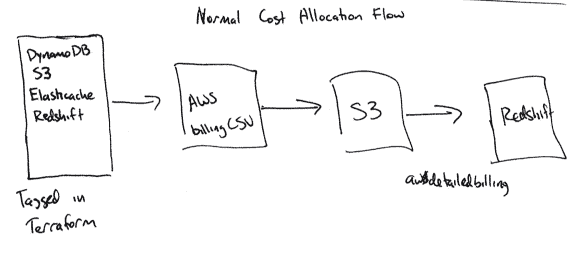 Normal Cost Allocation Flow
DynamoDB
S3
Elasticache
Redshift
Tagged in
Terraform
AWS
billing CSV
S3
awsdetailedbilling
Redshift